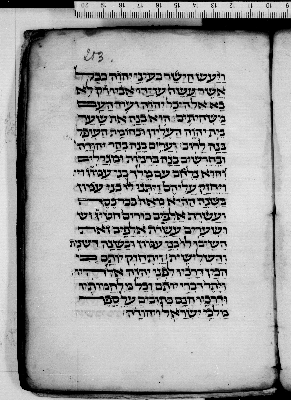 213.
ויעש הישר בעיני יהוה ככל
אשר עשה עזיהו אביו רק לא
בא אל היכל יהוה ועוד העם
משחיתים הוא בנה את שער
בית יהוה העליון ובחומת העופל
בנה לרוב וערים בנה בהר יהודה
ובחרשים בנה ומגדלים
והוא נלחם עם מלך בני עמון וי
ויחזק עליהם ויתנו לו בני עמון
בשנה ההיא מאה ככר כסף
ועשרת אלפים כורים חטים וש
ושעורים עשרת אלפים זאת
השיבו לו בני עמון ובשנה השנית
והשלישית ויתחזק יותם כי
הכין דרכיו לפני יהוה אלהיו
ויתר דברי יותם וכל מלחמותיו
ודרכיו הנם כתובים על ספר
מלכי ישראל ויהודה